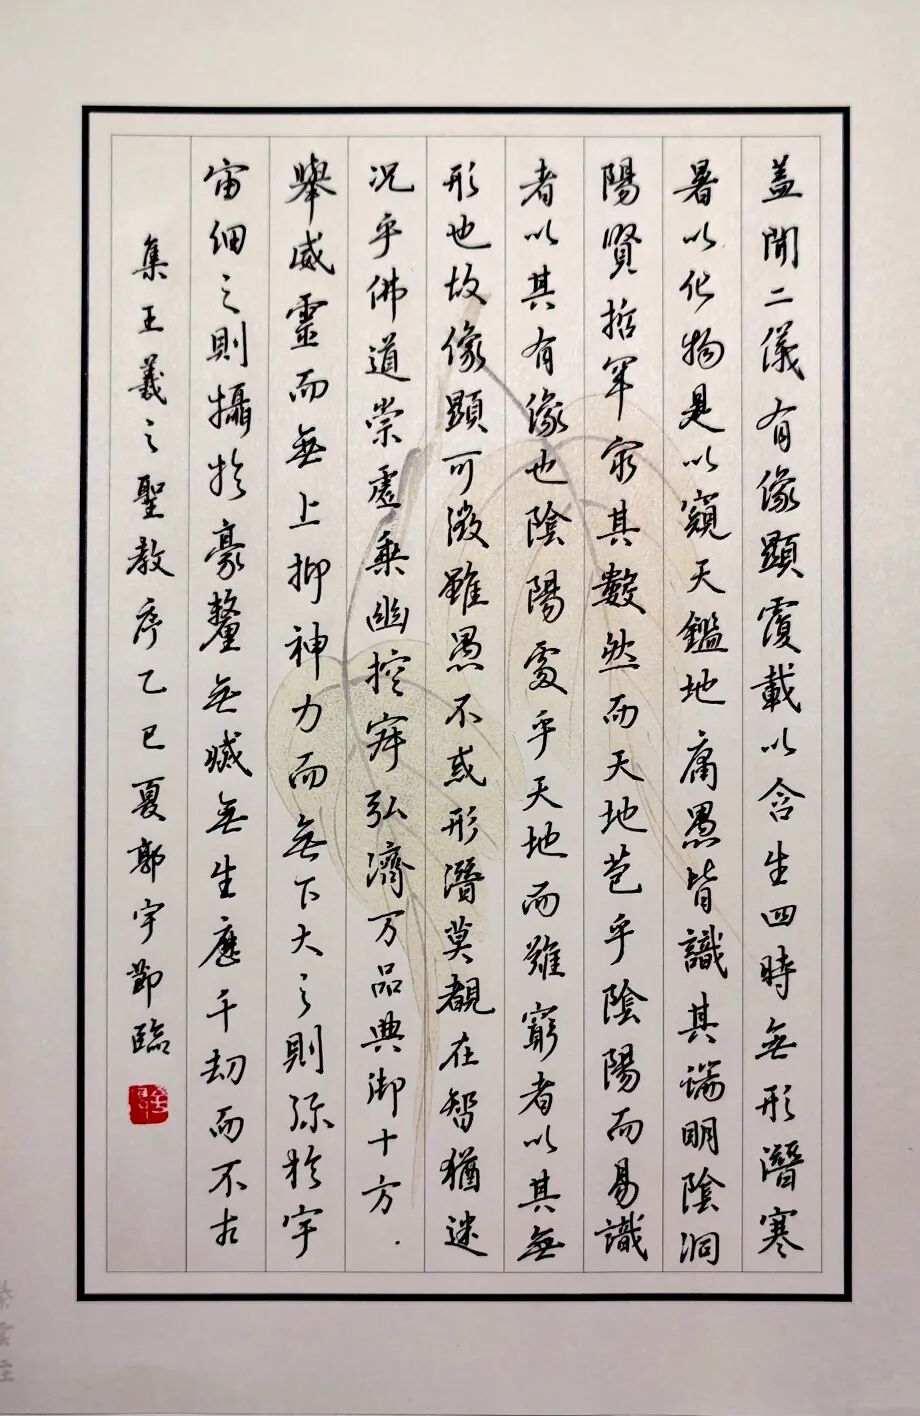 盖聞二儀有像顯覆載以含生四時無形潛寒
暑以化物是以窺天鑑地庸愚皆識其端明陰洞
陽賢哲罕窮其數然而天地苞乎陰陽而易識
者以其有像也陰陽處乎天地而難窮者以其無
形也故像顯可徵雖愚不惑形潛莫覩在智猶迷
況乎佛道崇虛乘幽控寂弘濟万品典御十方
舉威靈而無上抑神力而無下大之則彌於宇
宙細之則攝於豪釐無滅無生應千劫而不古
集王羲之聖教序乙巳夏郭宇節臨